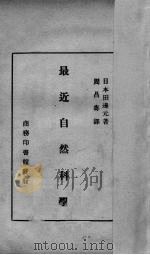 日本田邊元著
周昌壽譯
最近自然科學
商務印書館發行
www.modernhistory.org.cn